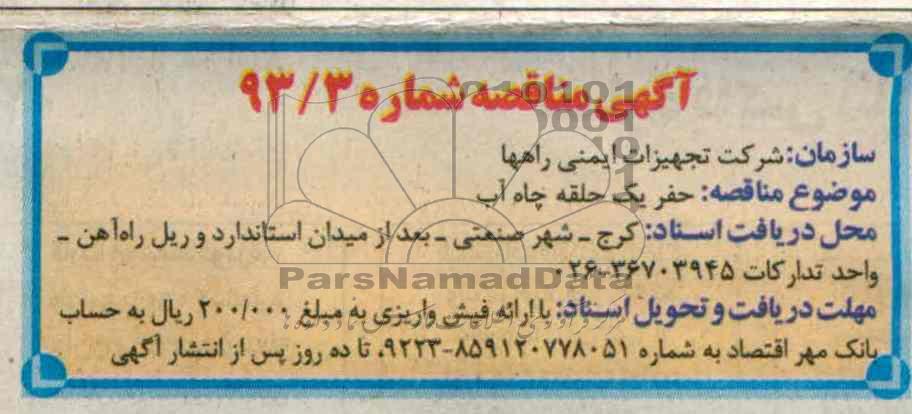 آگهی مناقصه شماره ۹۳/۳
سازمان: شرکت تجهیزات ایمنی راهها
موضوع مناقصه: حفر یک حلقه چاه آب
محل دریافت اسناد: کرج ـ شهر صنعتی ـ بعد از میدان استاندارد و ریل راه‌آهن ـ
واحد تدارکات ۳۶۷۰۳۹۴۵-۰۲۶
ParsNamadData
مهلت دریافت و تحویل اسناد: با ارائه فیش واریزی به مبلغ ۲۰۰/۰۰۰ ریال به حساب
بانک مهر اقتصاد به شماره ۸۵۹۱۲۰۷۷۸۰۵۱-۹۲۲۳، تا ده روز پس از انتشار آگهی